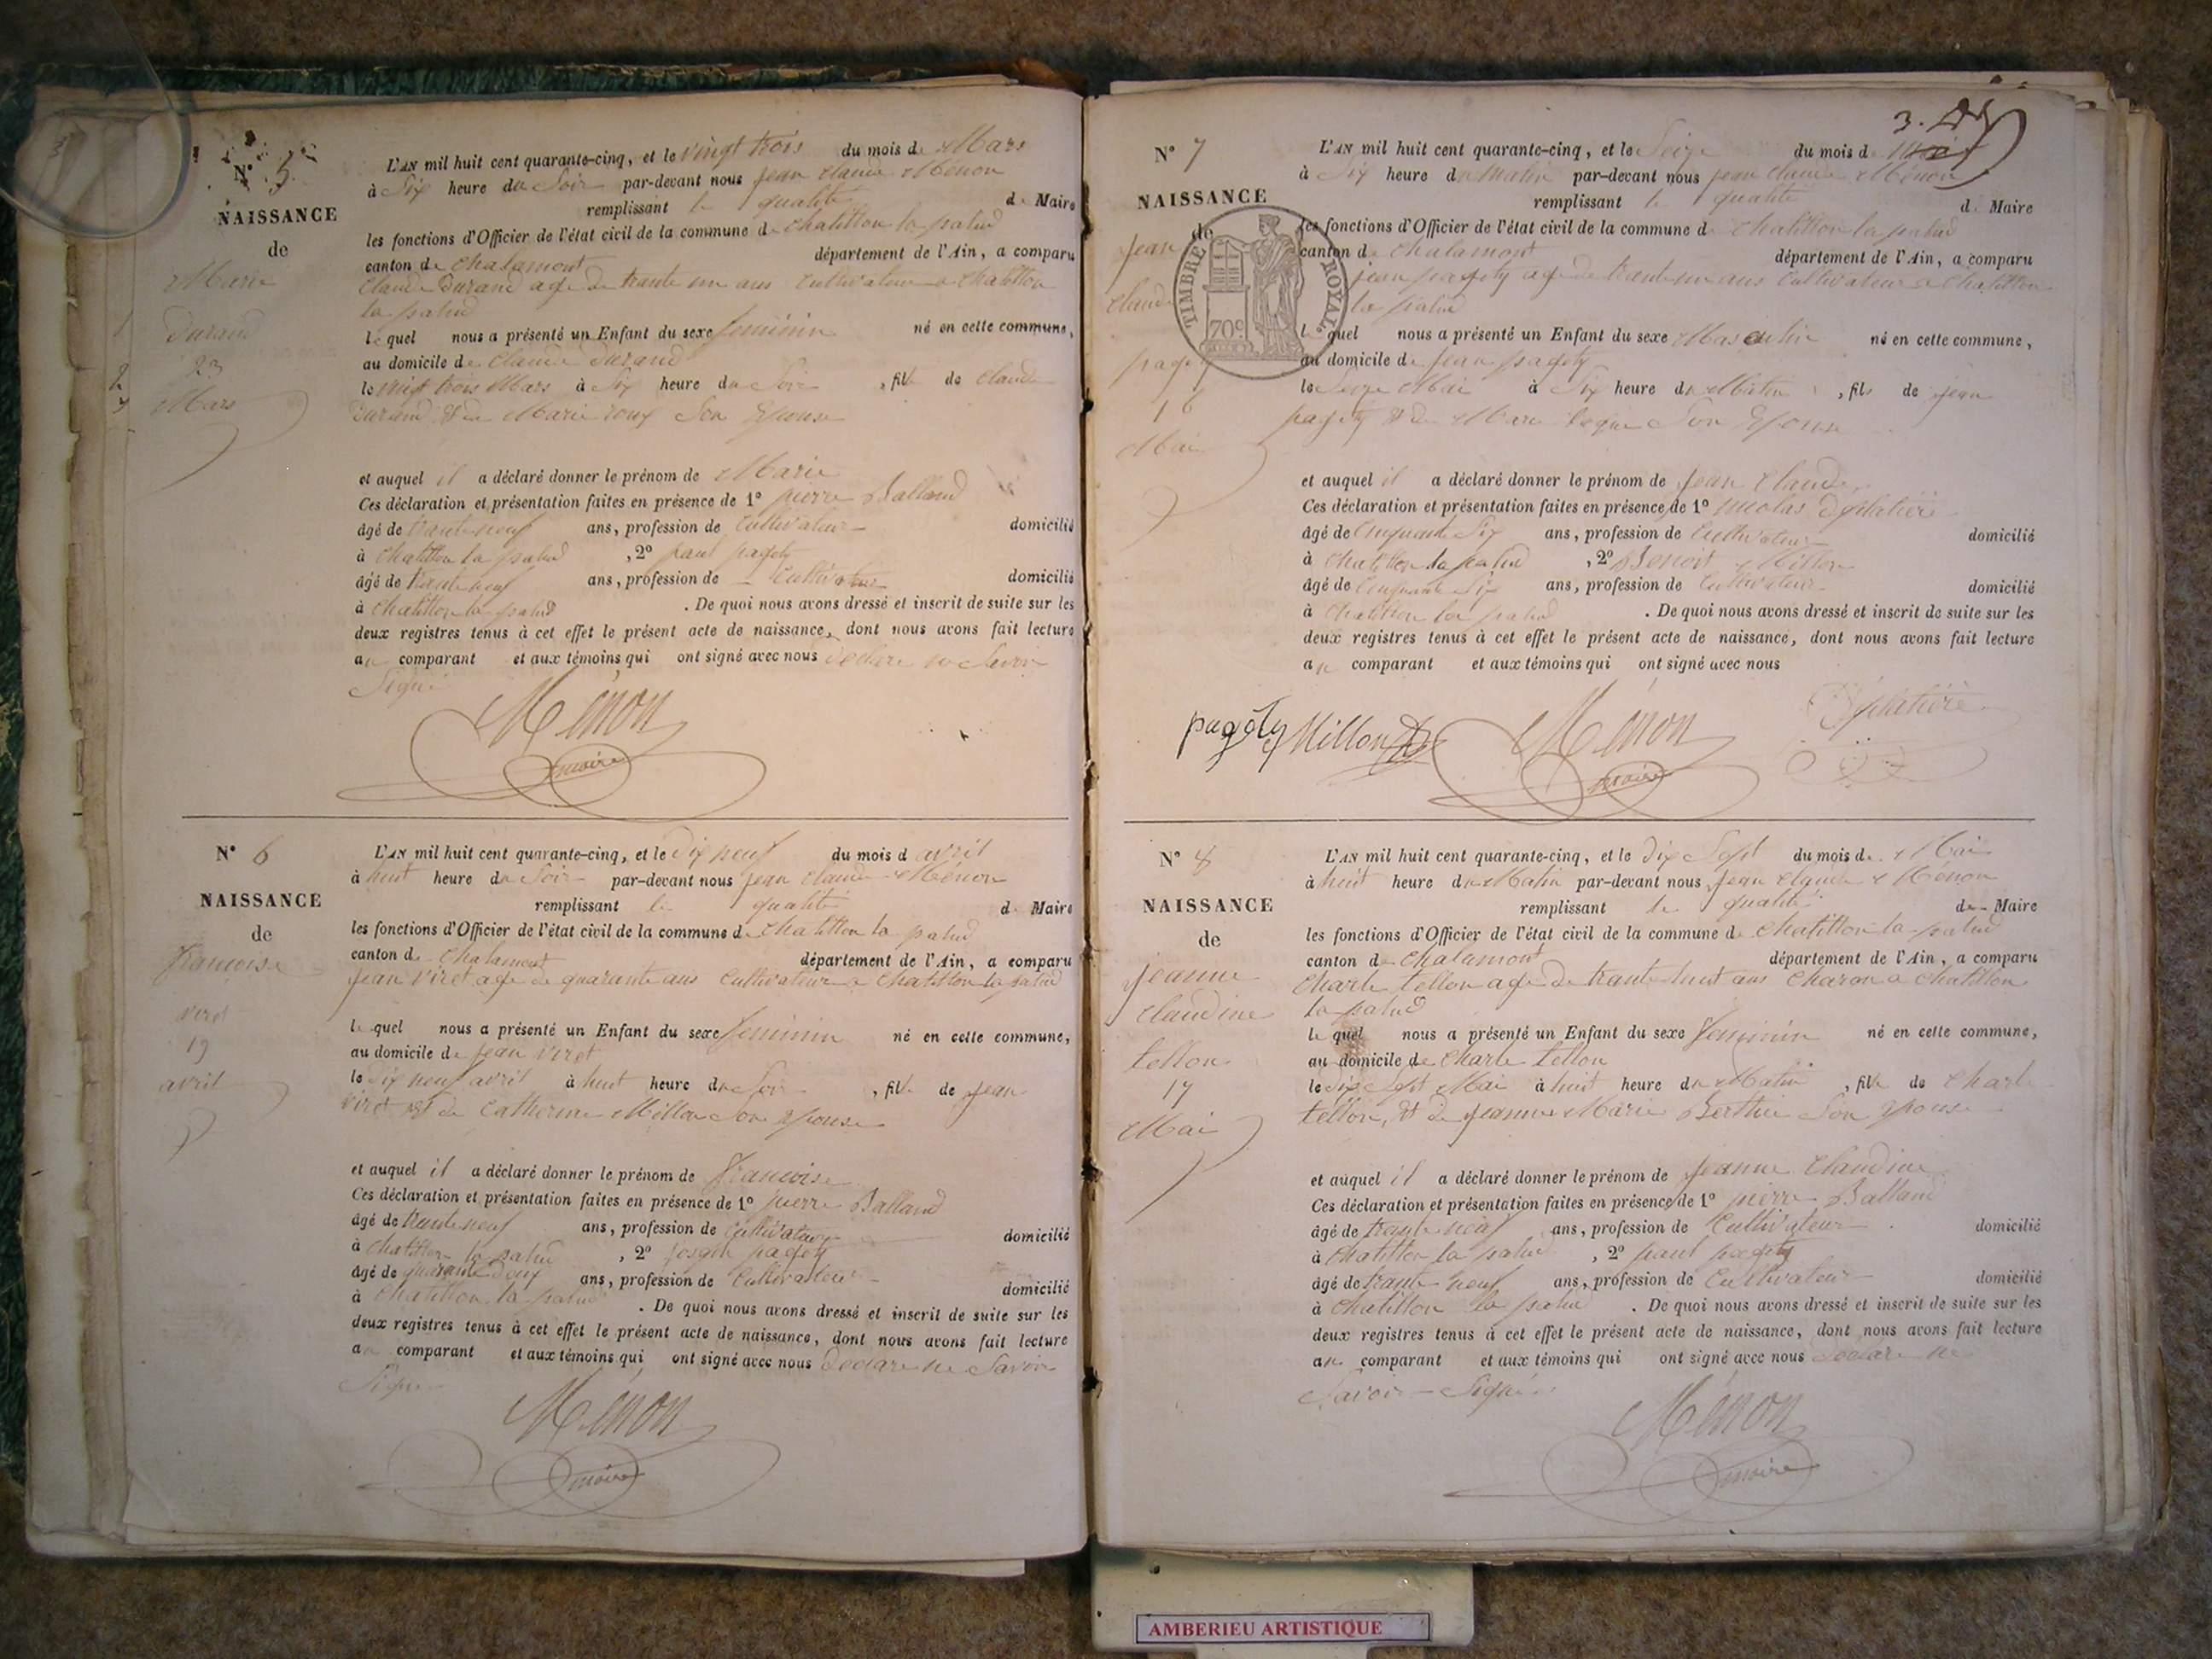 N° 5
NAISSANCE
de
Marie
Durand
23
Mars
L'AN mil huit cent quarante-cinq, et le vingt trois du mois de Mars
à Six heure du Soir par-devant nous jean claude Ménon
remplissant la qualité de Maire
les fonctions d'Officier de l'état civil de la commune de chatillon la palud
canton de chalamont département de l'Ain, a comparu
claude Durand agé de trante un ans cultivateur a chatillon
la palud
le quel nous a présenté un Enfant du sexe feminin né en cette commune,
au domicile de claude Durand
le vingt trois Mars à Six heure du Soir, fille de claude
Durand et de Marie roux Son Epouse
et auquel il a déclaré donner le prénom de Marie
Ces déclaration et présentation faites en présence de 1° pierre Balland
âgé de trante neuf ans, profession de Cultivateur domicilié
à chatillon la palud, 2° paul pagety
âgé de trante neuf ans, profession de Cultivateur domicilié
à chatillon la palud. De quoi nous avons dressé et inscrit de suite sur les
deux registres tenus à cet effet le présent acte de naissance, dont nous avons fait lecture
au comparant et aux témoins qui ont signé avec nous declare ne Savoir
Signé
Ménon
maire
N° 6
NAISSANCE
de
francoise
viret
19
avril
L'AN mil huit cent quarante-cinq, et le Dix neuf du mois d avril
à huit heure du Soir par-devant nous jean claude Ménon
remplissant la qualité de Maire
les fonctions d'Officier de l'état civil de la commune de chatillon la palud
canton de chalamont département de l'Ain, a comparu
jean viret agé de quarante ans cultivateur a chatillon la palud
le quel nous a présenté un Enfant du sexe feminin né en cette commune,
au domicile de jean viret
le Dix neuf avril à huit heure du Soir, fille de jean
viret et de Catherine Millon Son Epouse
et auquel il a déclaré donner le prénom de francoise
Ces déclaration et présentation faites en présence de 1° pierre Balland
âgé de trante neuf ans, profession de Cultivateur domicilié
à chatillon la palud, 2° joseph pagety
âgé de quarante Deux ans, profession de Cultivateur domicilié
à chatillon la palud. De quoi nous avons dressé et inscrit de suite sur les
deux registres tenus à cet effet le présent acte de naissance, dont nous avons fait lecture
au comparant et aux témoins qui ont signé avec nous declare ne Savoir
Signé
Ménon
maire
N° 7
NAISSANCE
de
jean
claude
pagety
16
Mai
TIMBRE ROYAL
70c
L'AN mil huit cent quarante-cinq, et le Seize du mois de Mai
à Six heure du Matin par-devant nous jean claude Ménon
remplissant la qualité de Maire
les fonctions d'Officier de l'état civil de la commune de chatillon la palud
canton de chalamont département de l'Ain, a comparu
jean pagety agé de trante un ans Cultivateur a chatillon
la palud
le quel nous a présenté un Enfant du sexe Masculin né en cette commune,
au domicile de jean pagety
le Seize Mai à Six heure du Matin, fils de jean
pagety et de Marie Son Epouse
et auquel il a déclaré donner le prénom de jean claude
Ces déclaration et présentation faites en présence de 1° nicolas Dephetière
âgé de Cinquante Six ans, profession de Cultivateur domicilié
à chatillon la palud, 2° Benoit Millon
âgé de Cinquante Six ans, profession de Cultivateur domicilié
à chatillon la palud. De quoi nous avons dressé et inscrit de suite sur les
deux registres tenus à cet effet le présent acte de naissance, dont nous avons fait lecture
au comparant et aux témoins qui ont signé avec nous
pagéty Millon Ménon
maire
N° 8
NAISSANCE
de
jeanne
claudine
tellon
17
Mai
L'AN mil huit cent quarante-cinq, et le Dix Sept du mois de Mai
à huit heure du Matin par-devant nous jean claude Ménon
remplissant la qualité de Maire
les fonctions d'Officier de l'état civil de la commune de chatillon la palud
canton de chalamont département de l'Ain, a comparu
charle tellon agé de trante huit ans charon a chatillon
la palud
le quel nous a présenté un Enfant du sexe feminin né en cette commune,
au domicile de charle tellon
le Dix Sept Mai à huit heure du Matin, fille de charle
tellon, et de jeanne Marie Berthie Son Epouse
et auquel il a déclaré donner le prénom de jeanne claudine
Ces déclaration et présentation faites en présence de 1° pierre Balland
âgé de trante neuf ans, profession de Cultivateur domicilié
à chatillon la palud, 2° paul pagety
âgé de trante neuf ans, profession de Cultivateur domicilié
à chatillon la palud. De quoi nous avons dressé et inscrit de suite sur les
deux registres tenus à cet effet le présent acte de naissance, dont nous avons fait lecture
au comparant et aux témoins qui ont signé avec nous declare ne
Savoir Signé
Ménon
maire
AMBERIEU ARTISTIQUE